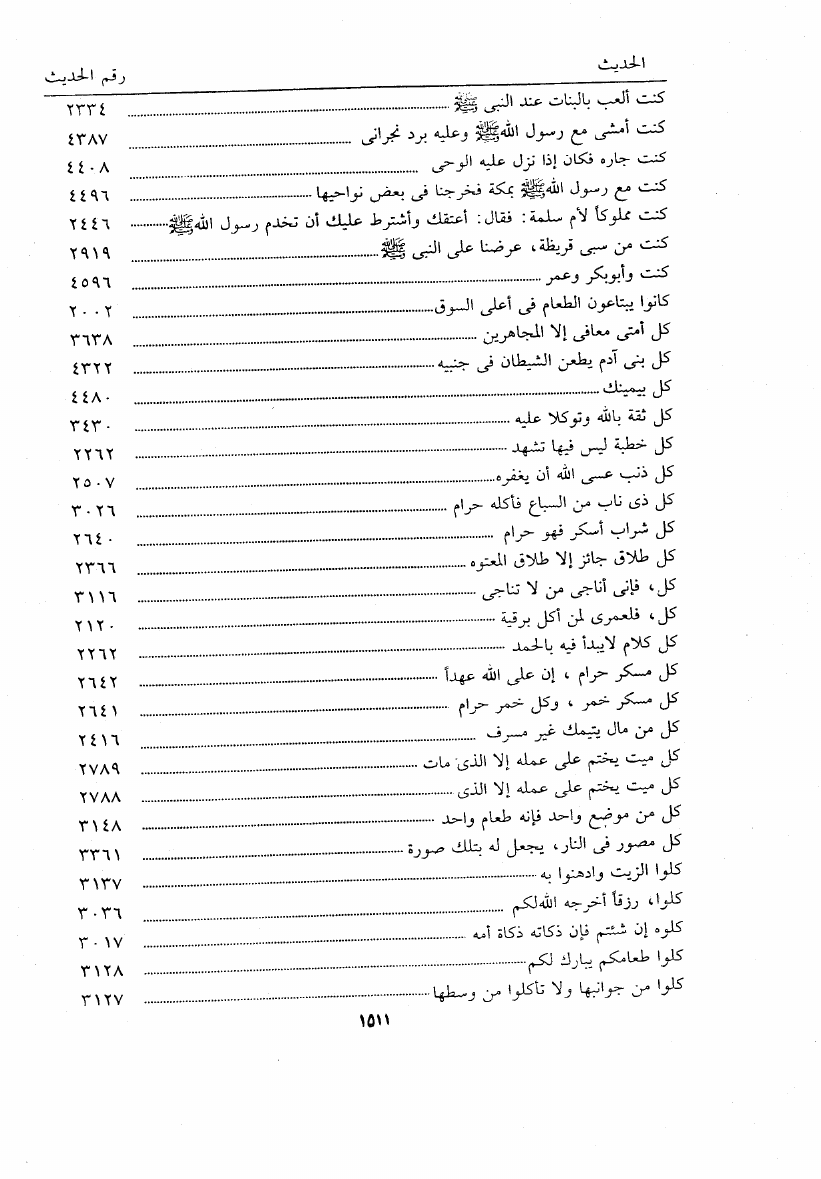 الحديث رقم الحديث
كنت ألعب بالبنات عند النبى ﷺ ٢٣٣٤
كنت أمشى مع رسول الله ﷺ وعليه برد نجرانى ٤٣٨٧
كنت جاره فكان إذا نزل عليه الوحى ٤٤٠٨
كنت مع رسول الله ﷺ بمكة فخرجنا فى بعض نواحيها ٤٤٩٦
كنت مملوكاً لأم سلمة: فقال: أعتقك وأشترط عليك أن تخدم رسول الله ﷺ ٢٤٤٦
كنت من سبى قريظة، عرضنا على النبى ﷺ ٢٩١٩
كنت وأبوبكر وعمر ٤٥٩٦
كانوا يبتاعون الطعام فى أعلى السوق ٢٠٠٢
كل أمتى معافى إلا المجاهرين ٣٦٣٨
كل بنى آدم يطعن الشيطان فى جنبيه ٤٣٢٢
كل بيمينك ٤٤٨٠
كل ثقة بالله وتوكلا عليه ٣٤٣٠
كل خطبة ليس فيها تشهد ٢٢٦٢
كل ذنب عسى الله أن يغفره ٢٥٠٧
كل ذى ناب من السباع فأكله حرام ٣٠٢٦
كل شراب أسكر فهو حرام ٢٦٤٠
كل طلاق جائز إلا طلاق المعتوه ٢٣٦٦
كل، فإنى أناجى من لا تناجى ٣١١٦
كل، فلعمرى لمن أكل برقية ٢١٢٠
كل كلام لايبدأ فيه بالحمد ٢٢٦٢
كل مسكر حرام ، إن على الله عهداً ٢٦٤٢
كل مسكر خمر ، وكل خمر حرام ٢٦٤١
كل من مال يتيمك غير مسرف ٢٤١٦
كل ميت يختم على عمله إلا الذى مات ٢٧٨٩
كل ميت يختم على عمله إلا الذى ٢٧٨٨
كل من موضع واحد فإنه طعام واحد ٣١٤٨
كل مصور فى النار، يجعل له بتلك صورة ٣٣٦١
كلوا الزيت وادهنوا به ٣١٣٧
كلوا، رزقاً أخرجه الله لكم ٣٠٣٦
كلوه إن شئتم فإن ذكاته ذكاة أمه ٣٠١٧
كلوا طعامكم يبارك لكم ٣١٢٨
كلوا من جوانبها ولا تأكلوا من وسطها ٣١٢٧
١٥١١